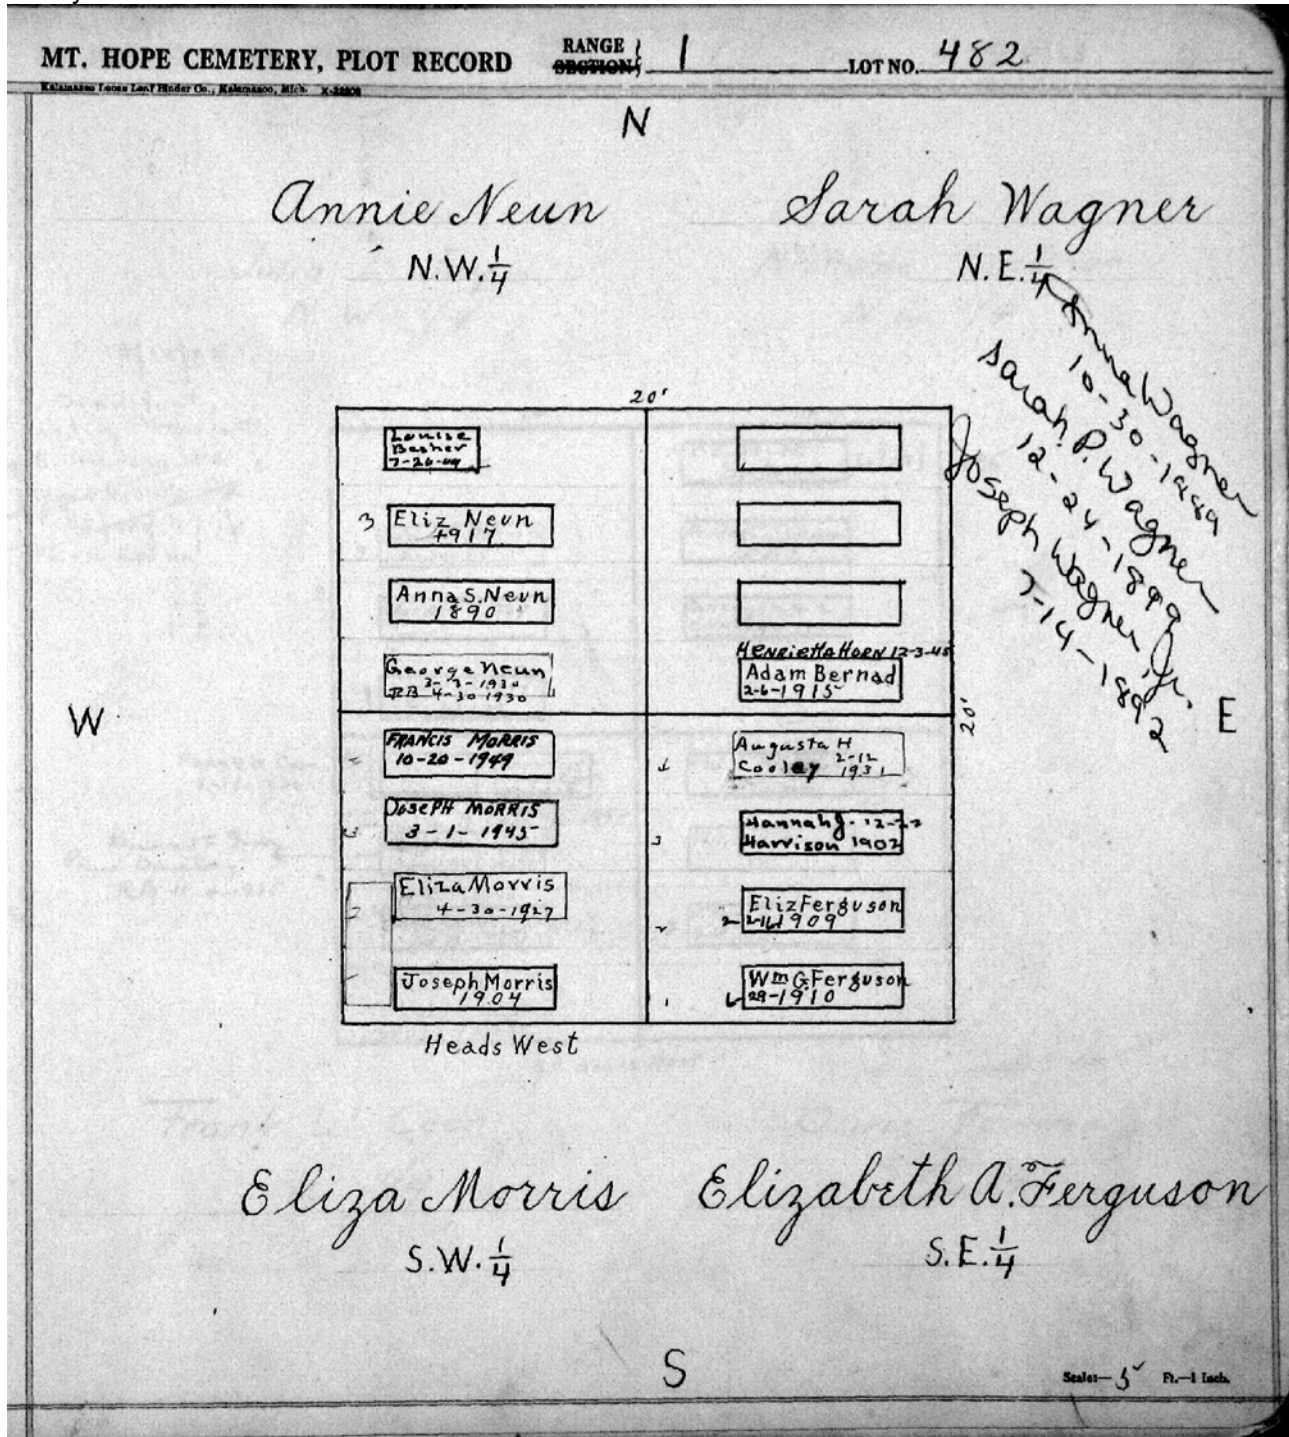 MT. HOPE CEMETERY, PLOT RECORD RANGE SECTION 1 LOT NO. 482
Kalamazoo Loose Leaf Binder Co., Kalamazoo, Mich.
N
Annie Neun
N.W. 1/4
Sarah Wagner
N.E. 1/4
Anna Wagner
10-30-1889
Sarah P. Wagner
12-24-1899
Joseph Wagner Jr.
7-14-1892
20'
Louise
7-26-49
3 Eliz Neun
1917
Anna S. Neun
1890
George Neun
3-3-1930
RB 4-30-1930
Henrietta Horn 12-3-45
Adam Bernad
2-6-1915
20'
W
E
FRANCIS MORRIS
10-20-1949
JOSEPH MORRIS
3-1-1945
Eliza Morris
4-30-1927
Joseph Morris
1904
Augusta H
Cooley 2-12
1931
3 Hannah J. 12-22
Harrison 1902
2 Eliz Ferguson
2-16-1909
1 Wm G. Ferguson
6-29-1910
Heads West
Eliza Morris
S.W. 1/4
Elizabeth A. Ferguson
S.E. 1/4
S
Scale:— 5 Ft.—1 Inch.